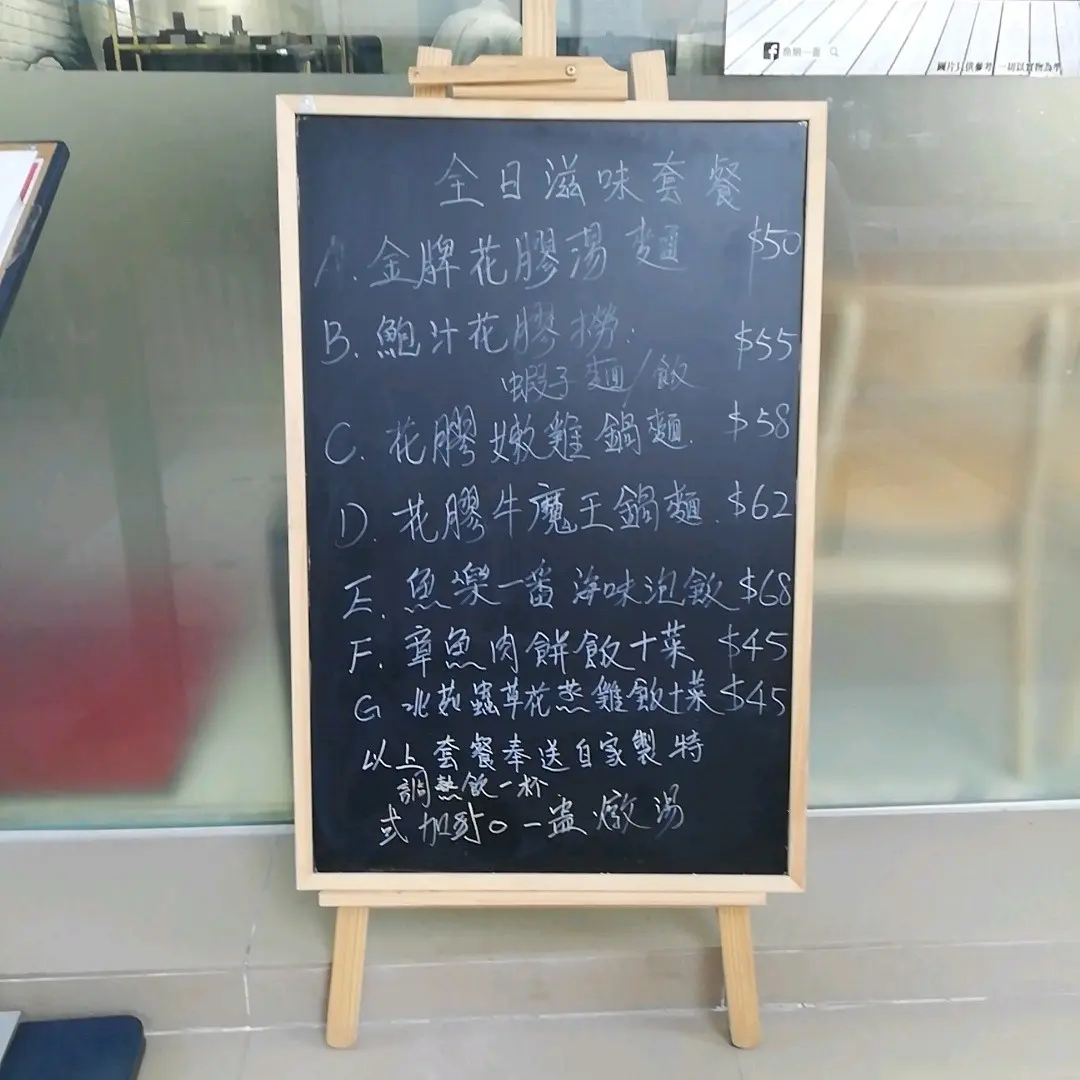 圖片只供參考 一切以實物為準
全日滋味套餐
A. 金牌花膠湯麵 $50
B. 鮑汁花膠撈: $55
蝦子麵/飯
C. 花膠嫩雞鍋麵. $58
D. 花膠牛魔王鍋麵. $62
E. 魚樂一番海味泡飯 $68
F. 章魚肉餅飯+菜 $45
G 北菇蟲草花蒸雞飯+菜 $45
以上套餐奉送自家製特
調熱飲一杯
或加 一盅燉湯